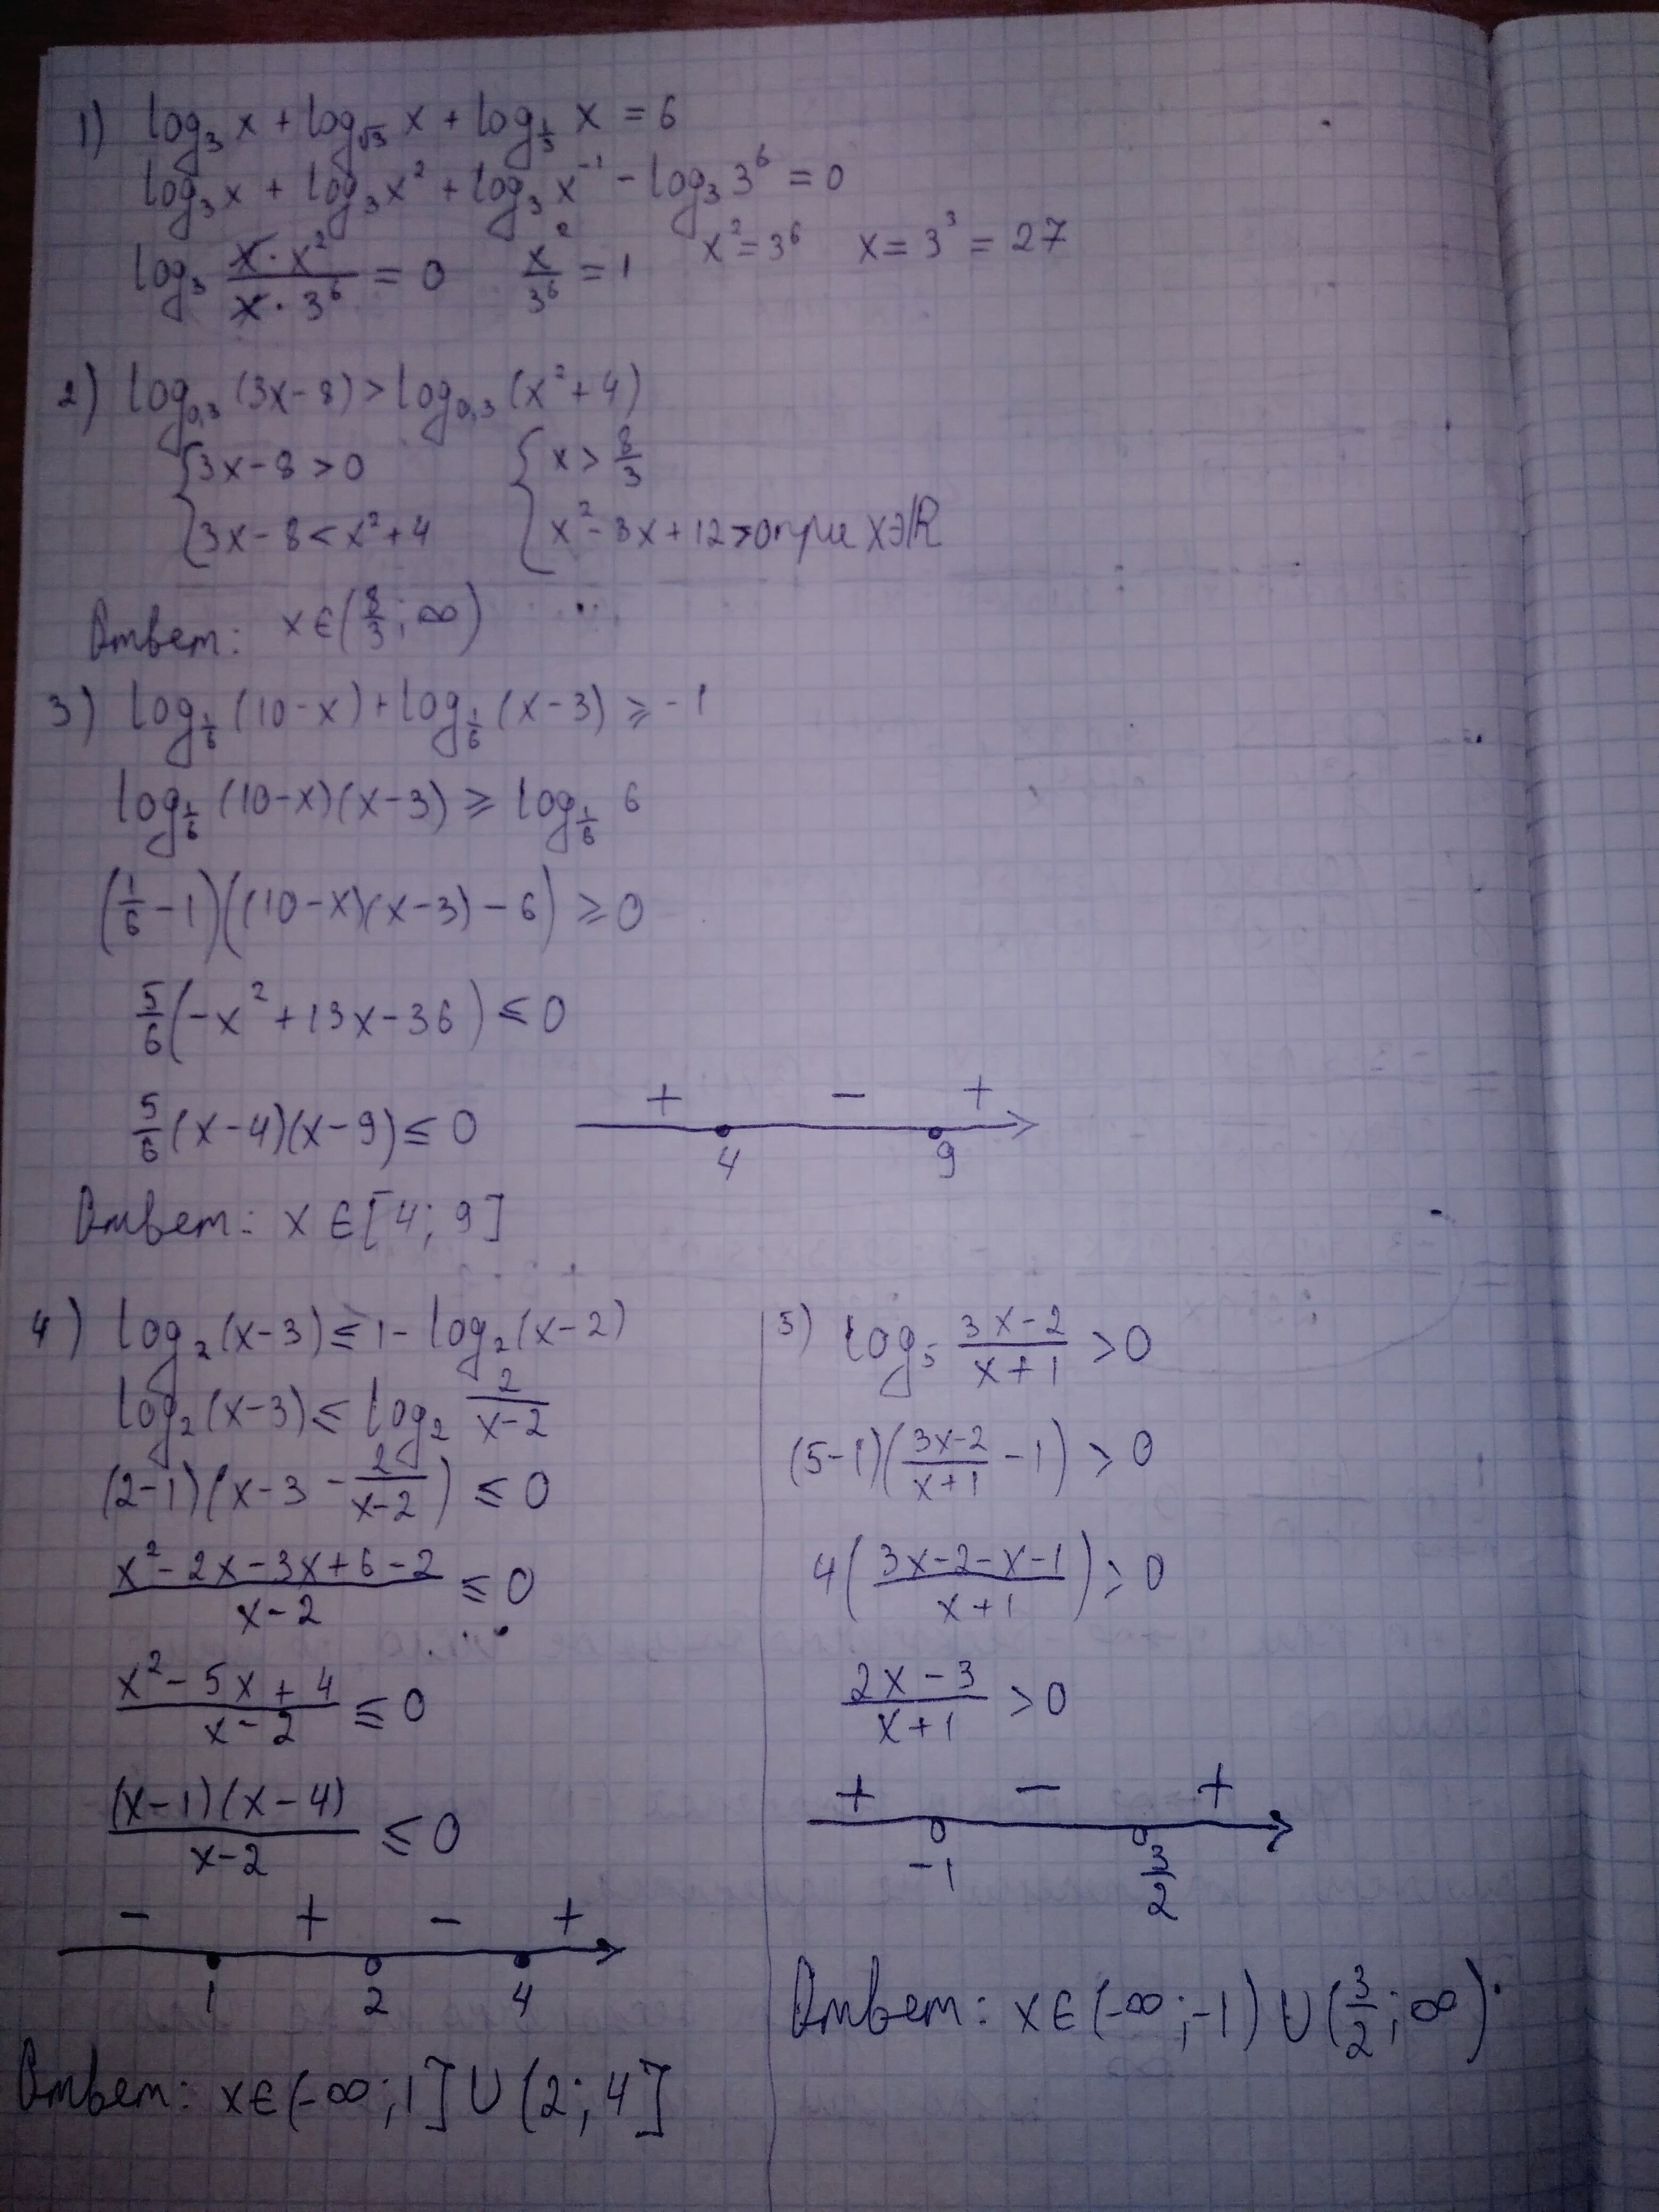 1) log₃ x + log_√3 x + log_1/3 x = 6
log₃ x + log₃ x² + log₃ x⁻¹ - log₃ 3⁶ = 0
log₃ (x · x²)/(x · 3⁶) = 0   x²/3⁶ = 1   x² = 3⁶   x = 3³ = 27
2) log₀,₃ (3x-8) > log₀,₃ (x²+4)
{ 3x-8 > 0   { x > 8/3
3x-8 < x²+4   x²-3x+12 > 0 при x∋ℝ
Ответ: x ∈ (8/3; ∞)
3) log_1/6 (10-x) + log_1/6 (x-3) ≥ -1
log_1/6 (10-x)(x-3) ≥ log_1/6 6
(1/6 - 1)((10-x)(x-3) - 6) ≥ 0
5/6 (-x² + 13x - 36) ≤ 0
5/6 (x-4)(x-9) ≤ 0   + - +
4 9
Ответ: x ∈ [4; 9]
4) log₂ (x-3) ≤ 1 - log₂ (x-2)
log₂ (x-3) ≤ log₂ 2/(x-2)
(2-1)(x-3 - 2/(x-2)) ≤ 0
(x²-2x-3x+6-2)/(x-2) ≤ 0
(x²-5x+4)/(x-2) ≤ 0
(x-1)(x-4)/(x-2) ≤ 0
- + - +
1 2 4
Ответ: x ∈ (-∞; 1] ∪ (2; 4]
5) log₅ (3x-2)/(x+1) > 0
(5-1)((3x-2)/(x+1) - 1) > 0
4((3x-2-x-1)/(x+1)) > 0
(2x-3)/(x+1) > 0
+ - +
-1 3/2
Ответ: x ∈ (-∞; -1) ∪ (3/2; ∞)